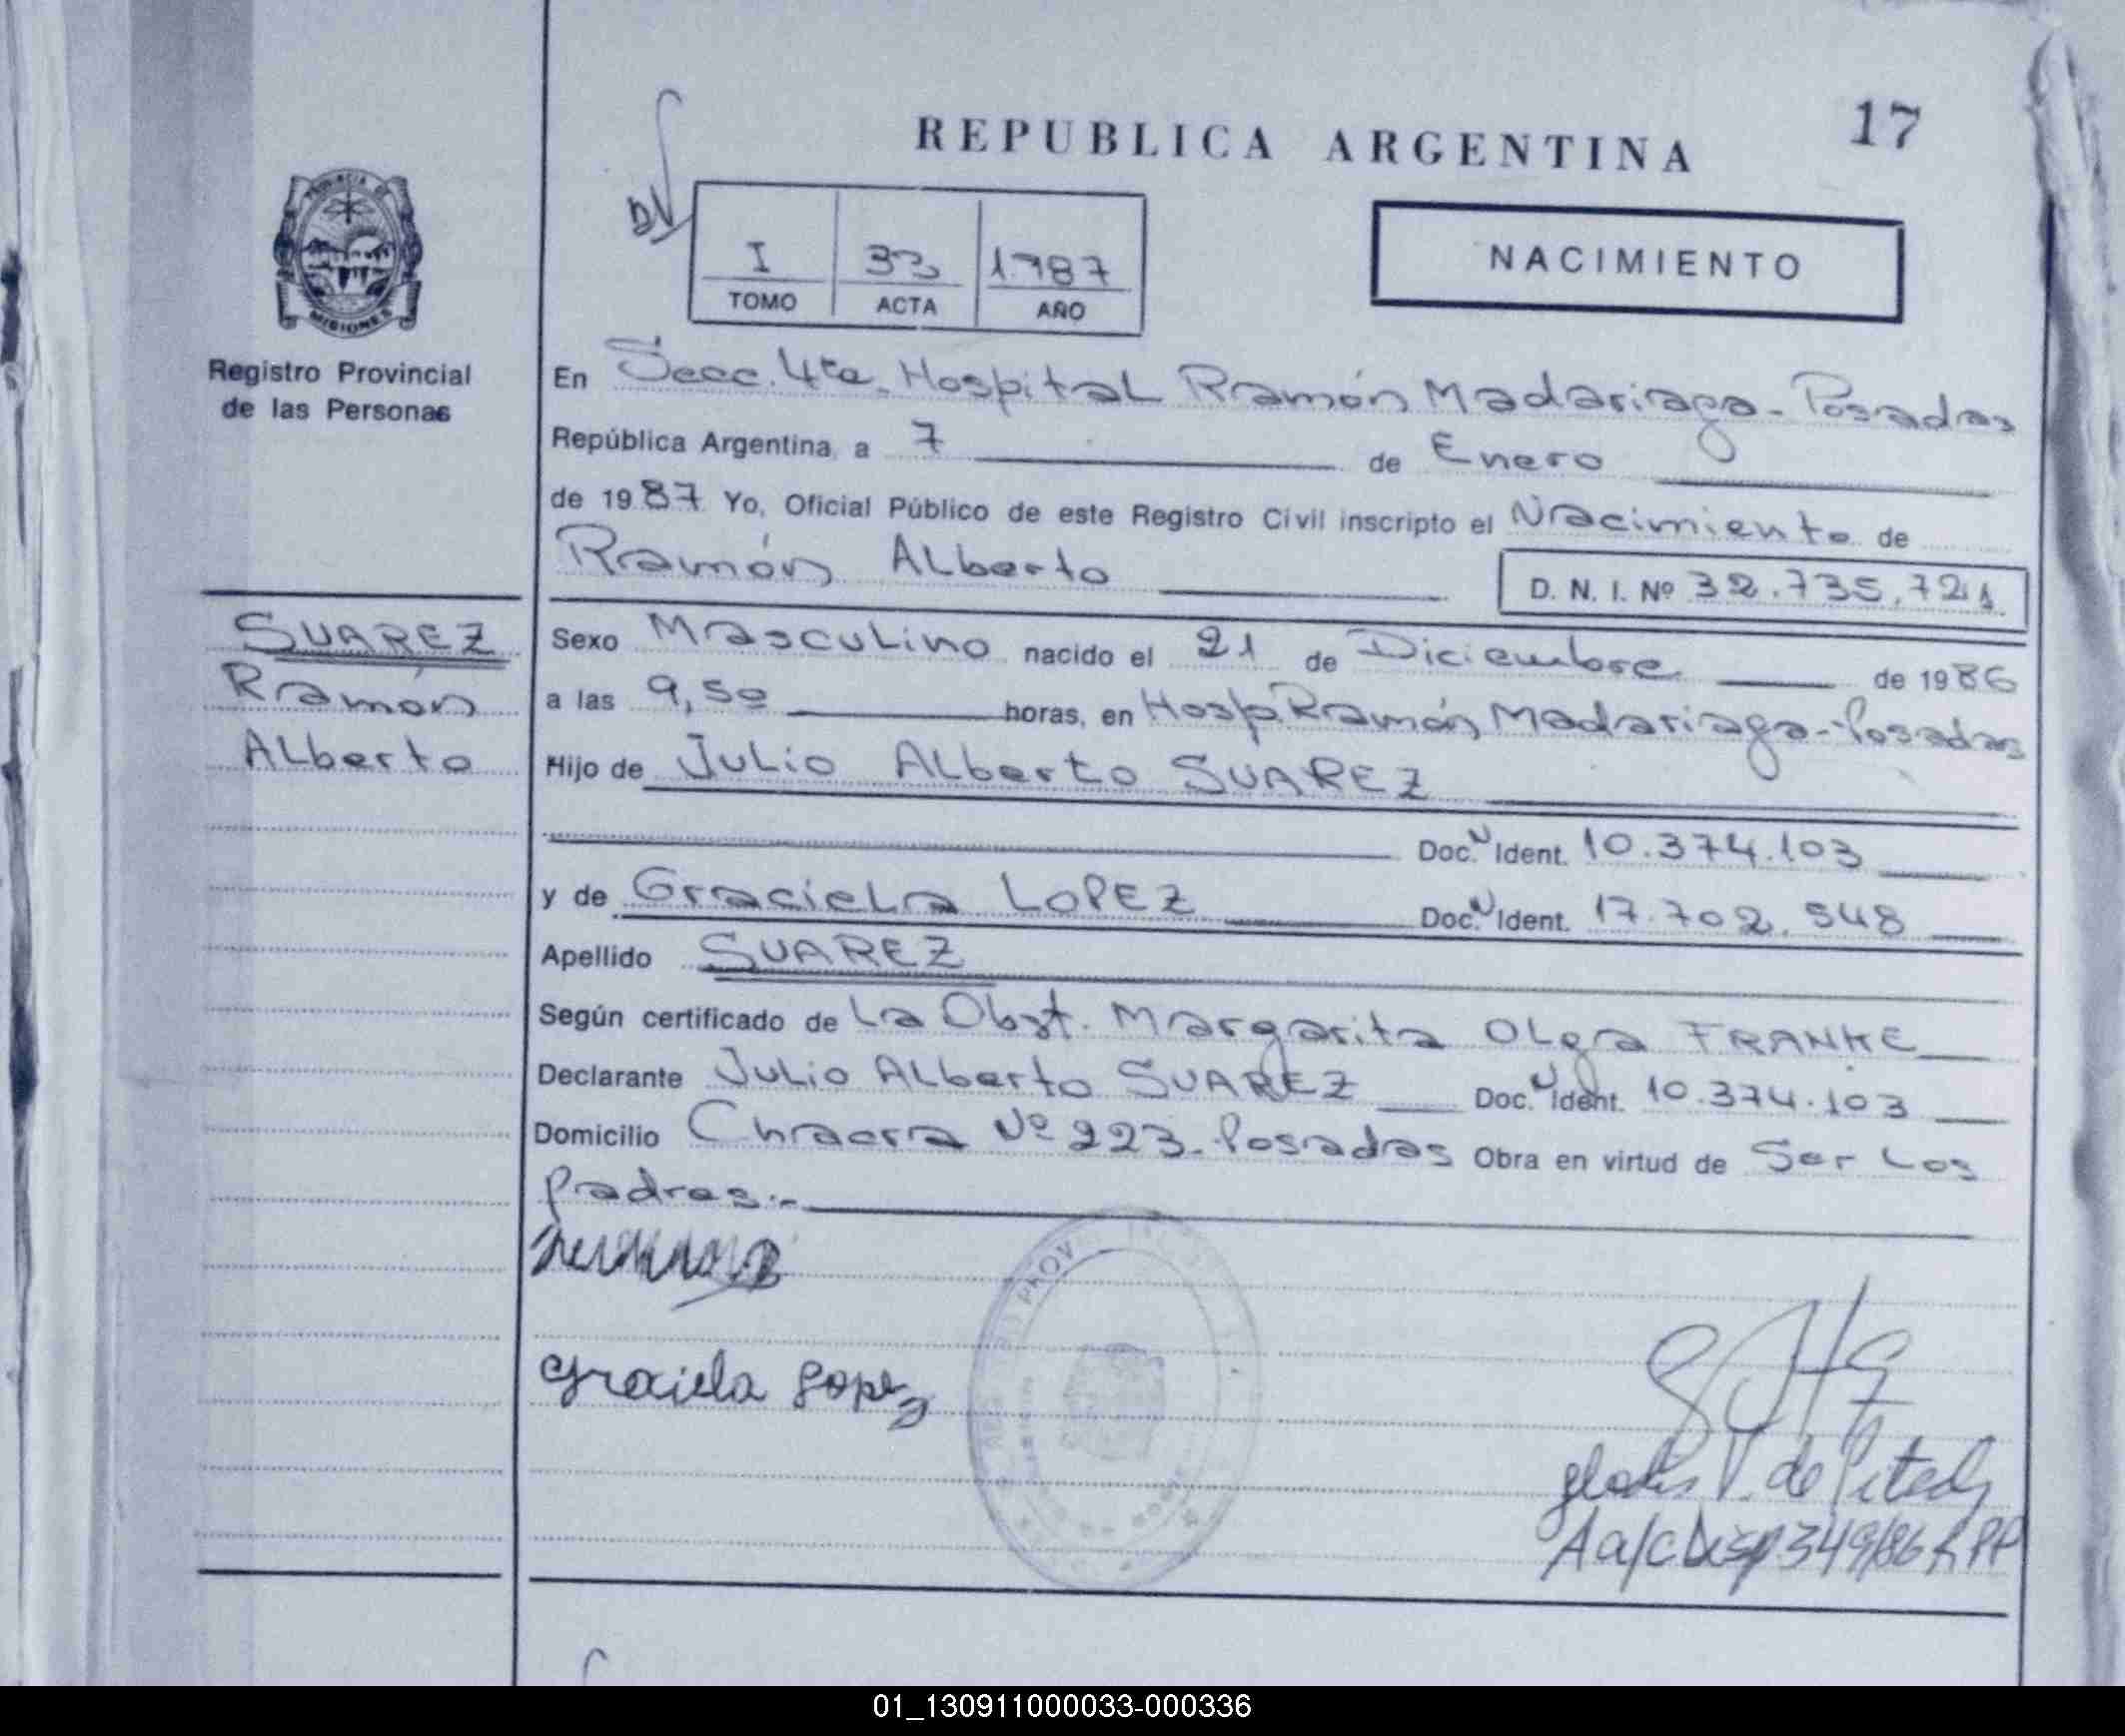 REPUBLICA ARGENTINA
17
PROVINCIA DE
MISIONES
Registro Provincial
de las Personas
I
33
1987
TOMO
ACTA
AÑO
NACIMIENTO
En Secc. 4ta. Hospital Ramón Madariaga - Posadas
República Argentina, a 7 de Enero
de 1987 Yo, Oficial Público de este Registro Civil inscripto el Nacimiento de
Ramón Alberto
D. N. I. Nº 32.735.721
SUAREZ
Ramón
Alberto
Sexo Masculino nacido el 21 de Diciembre de 1986
a las 9,50 horas, en Hosp. Ramón Madariaga - Posadas
Hijo de Julio Alberto SUAREZ
Doc. Ident. 10.374.103
y de Graciela LOPEZ Doc. Ident. 17.702.548
Apellido SUAREZ
Según certificado de La Obst. Margarita Olga FRANKE
Declarante Julio Alberto SUAREZ Doc. Ident. 10.374.103
Domicilio Chacra Nº 223 - Posadas Obra en virtud de Ser Los
padres.-
PROV
Graciela Lopez
V. de
349/86
01_130911000033-000336